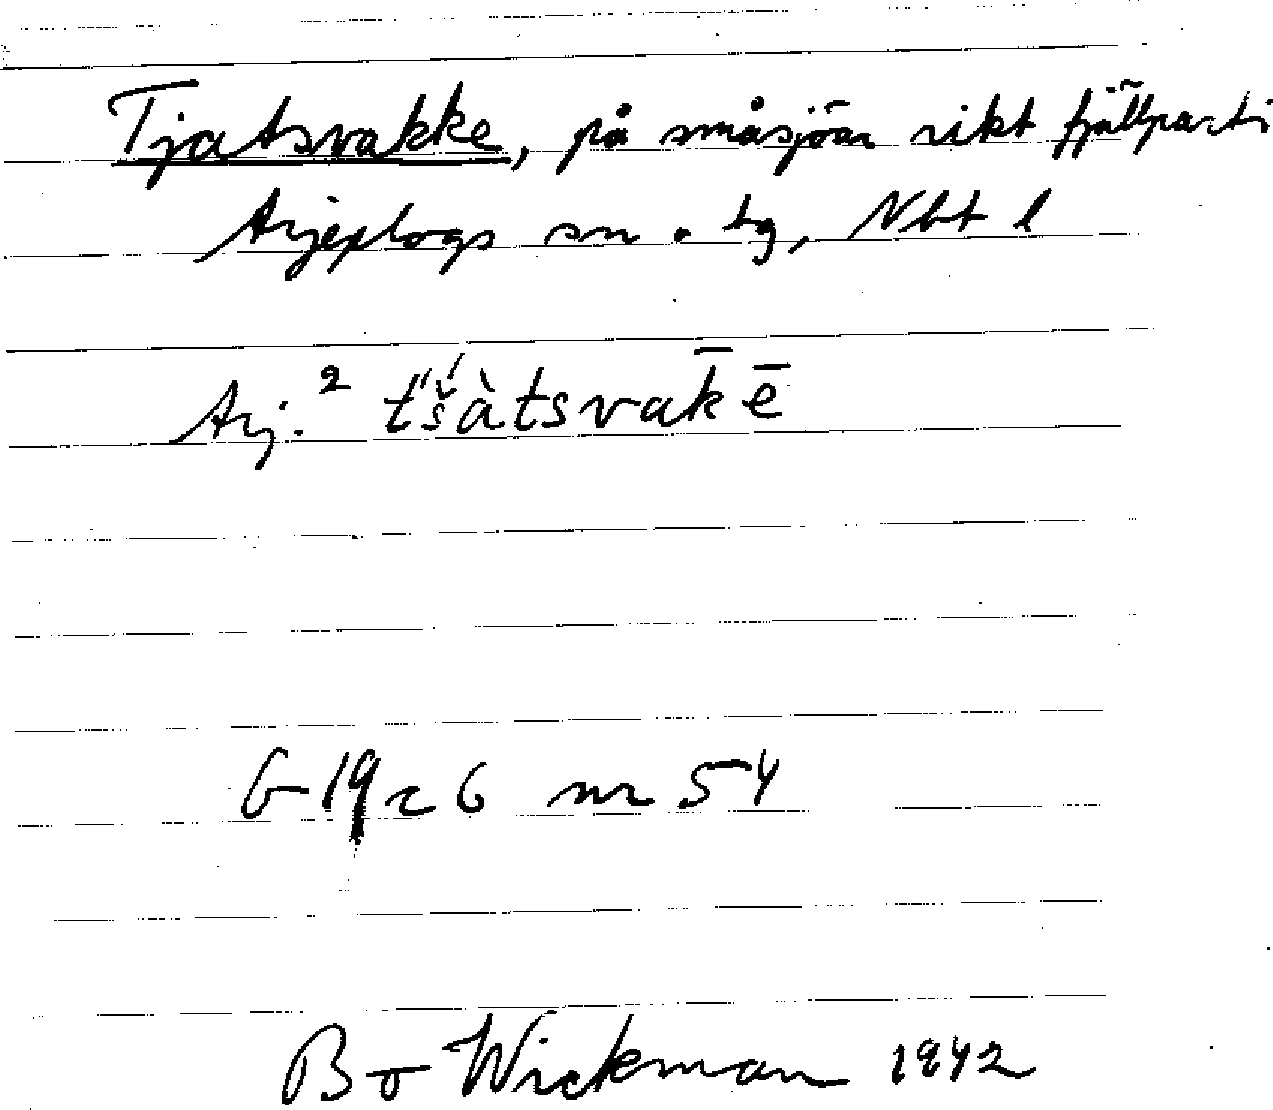 Tjatsvakke, på småsjöar rikt fjällparti
Arjeplogs sn o. tg, Nbt l
Arj.² t́š́àtsvak̄ē
G 19 c 6 nr 54
Bo Wickman 1942